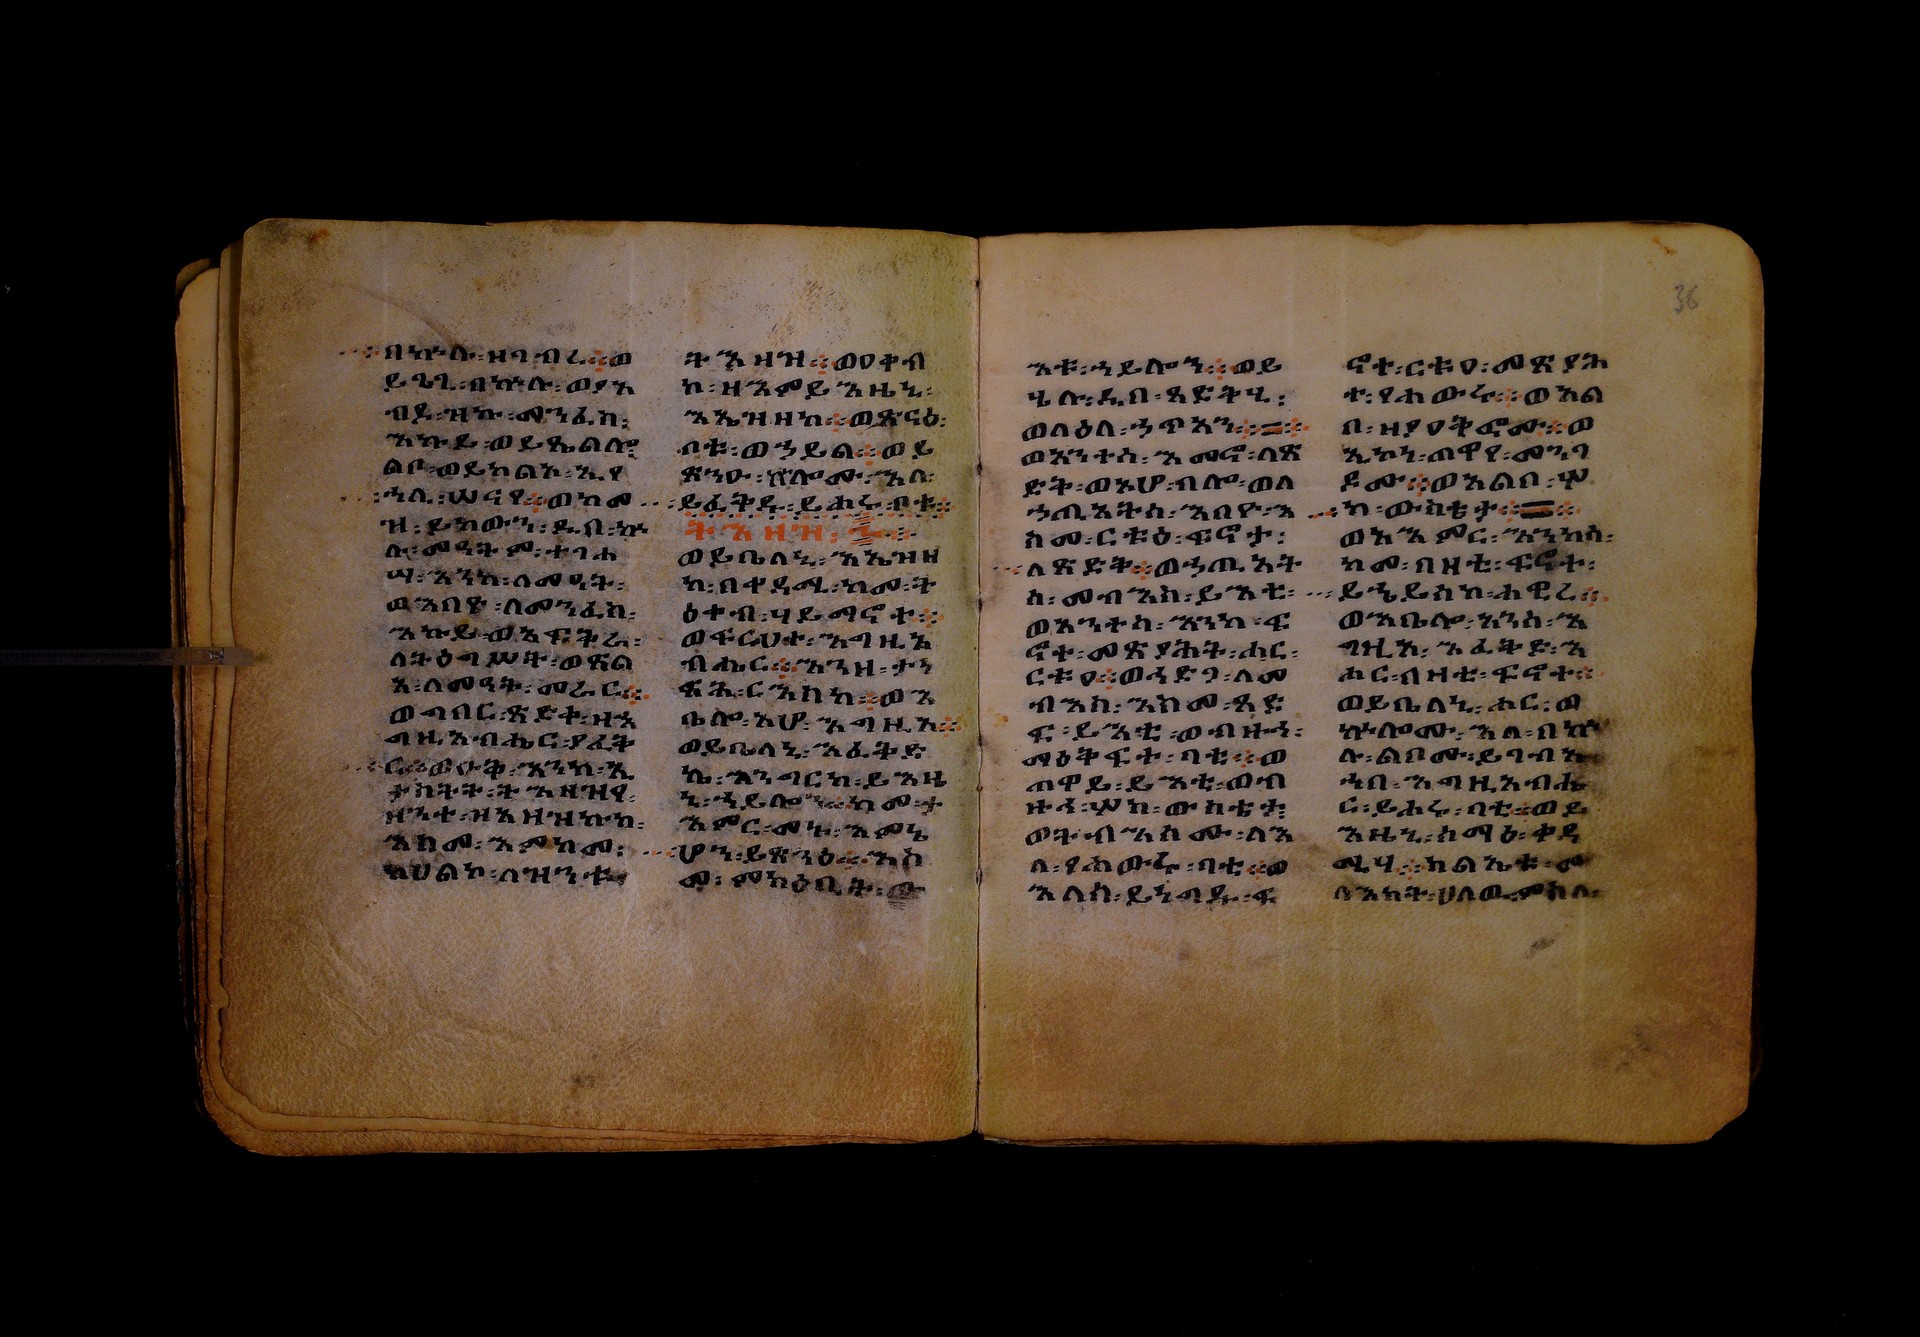 በኵሉ፡ዘገብረ፡፡ወ
ይጌጊ፡በኵሉ፡ወያአ
ብድ፡ዝኩ፡መንፈስ፡
እኩይ፡ወይጼልሎ፡
ልቦ፡ወይከልእ፡ኢየ
ኀሊ፡ሠናየ፡፡ወከመ
ዝ፡ይከውን፡ዲበ፡ኵ
ሉ፡መዓትም፡ተገሐ
ሠ፡እንከ፡ለመዓት፡
ወእበዮ፡ለመንፈስ፡
እኩይ፡ወአፍቅራ፡
ለትዕግሥት፡ወጽል
አ፡ለመዓት፡መሪር፡፡
ወግበር፡ጽድቀ፡ዘእ
ግዚአብሔር፡ያፈቅ
ር፡፡ወዑቅ፡እንከ፡ኢ
ትስትት፡ትእዛዝየ፡
ዛንተ፡ዝአዘዝኩከ፡
እስመ፡እምከመ፡
አህልከ፡ለዛንቱ
ትእዛዝ፡፡ወዐቀብ
ከ፡ዘእምይእዜኒ፡
እኤዝዘከ፡፡ወጽናዕ፡
ቦቱ፡ወኀይል፡፡ወይ
ጸንዑ፡ኵሎሙ፡እለ፡
ይፈቅዱ፡ይሑሩ፡ቦቱ፡፡
ትእዛዝ፡
ወይቤለኒ፡አኤዝዘ
ከ፡በቀዳሚ፡ከመ፡ት
ዕቀብ፡ሃይማኖተ፡፡
ወፍርሀተ፡እግዚአ
ብሔር፡፡እንዘ፡ታን
ጽሕ፡ርእስከ፡፡ወእ
ቤሎ፡አሆ፡እግዚእ፡፡
ወይቤለኒ፡እፈቅድ
ኬ፡እንግርከ፡ይእዜ
ኒ፡ኀይሎን፡ከመ፡ታ
እምር፡መኑ፡እምኔ
ሆን፡ይጸንዕ፡፡እስ
መ፡ምክዕቢት፡ው
እቱ፡ኀይሎን፡፡ወይ
ሄሉ፡ዲበ፡ጻድቅሂ፡
ወላዕለ፡ኃጥአን፡፡
ወአንተሰ፡እመኖ፡ለጽ
ድቅ፡ወአሆ፡ብሎ፡ወለ
ኀጢአትሰ፡እበዮ፡እ
ስመ፡ርቱዕ፡ፍኖታ፡
ለጽድቅ፡፡ወኀጢአት
ሰ፡መብእስ፡ይእቲ፡
ወአንተሰ፡እንከ፡ፍ
ኖተ፡መጽያሕት፡ሑር፡
ርቱዐ፡፡ወኀድጋ፡ለመ
ብእስ፡እስመ፡ጻድ
ፍ፡ይእቲ፡ወብዙኅ፡
ማዕቅፍት፡ባቲ፡፡ወ
ጠዋይ፡ይእቲ፡ወብ
ዙኃ፡ሦክ፡ውስቴታ፡
ወትብእስሙ፡ለእ
ለ፡የሐውሩ፡ባቲ፡፡ወ
እለሰ፡ይነግዱ፡ፍ
ኖተ፡ርቱዐ፡መጽያሕ
ተ፡የሐውሩ፡፡ወአል
በ፡ዘያዐቅፎሙ፡፡ወ
ኢኮነ፡ጠዋየ፡መንገ
ዶሙ፡፡ወአልቦ፡ሦ
ክ፡ውስቴታ፡፡
ወአእምር፡እንከሰ፡
ከመ፡በዛቲ፡ፍኖት፡
ይኄይስከ፡ሐዊረ፡፡
ወእቤሎ፡እንከ፡እ
ግዚእ፡እፈቅድ፡እ
ሑር፡በዛቲ፡ፍኖት፡፡
ወይቤለኒ፡ሑር፡ወ
ኵሎሙ፡እለ፡በኵ
ሉ፡ልቦሙ፡ይገብኡ፡
ኀበ፡እግዚአብሔ
ር፡ይሑሩ፡ባቲ፡፡ወይ
እዜኒ፡ስማዕ፡ቀዳ
ሚሃ፡፡ክልኤቱ፡መ
ላእክት፡ሀለዉ፡ምስለ፡
36